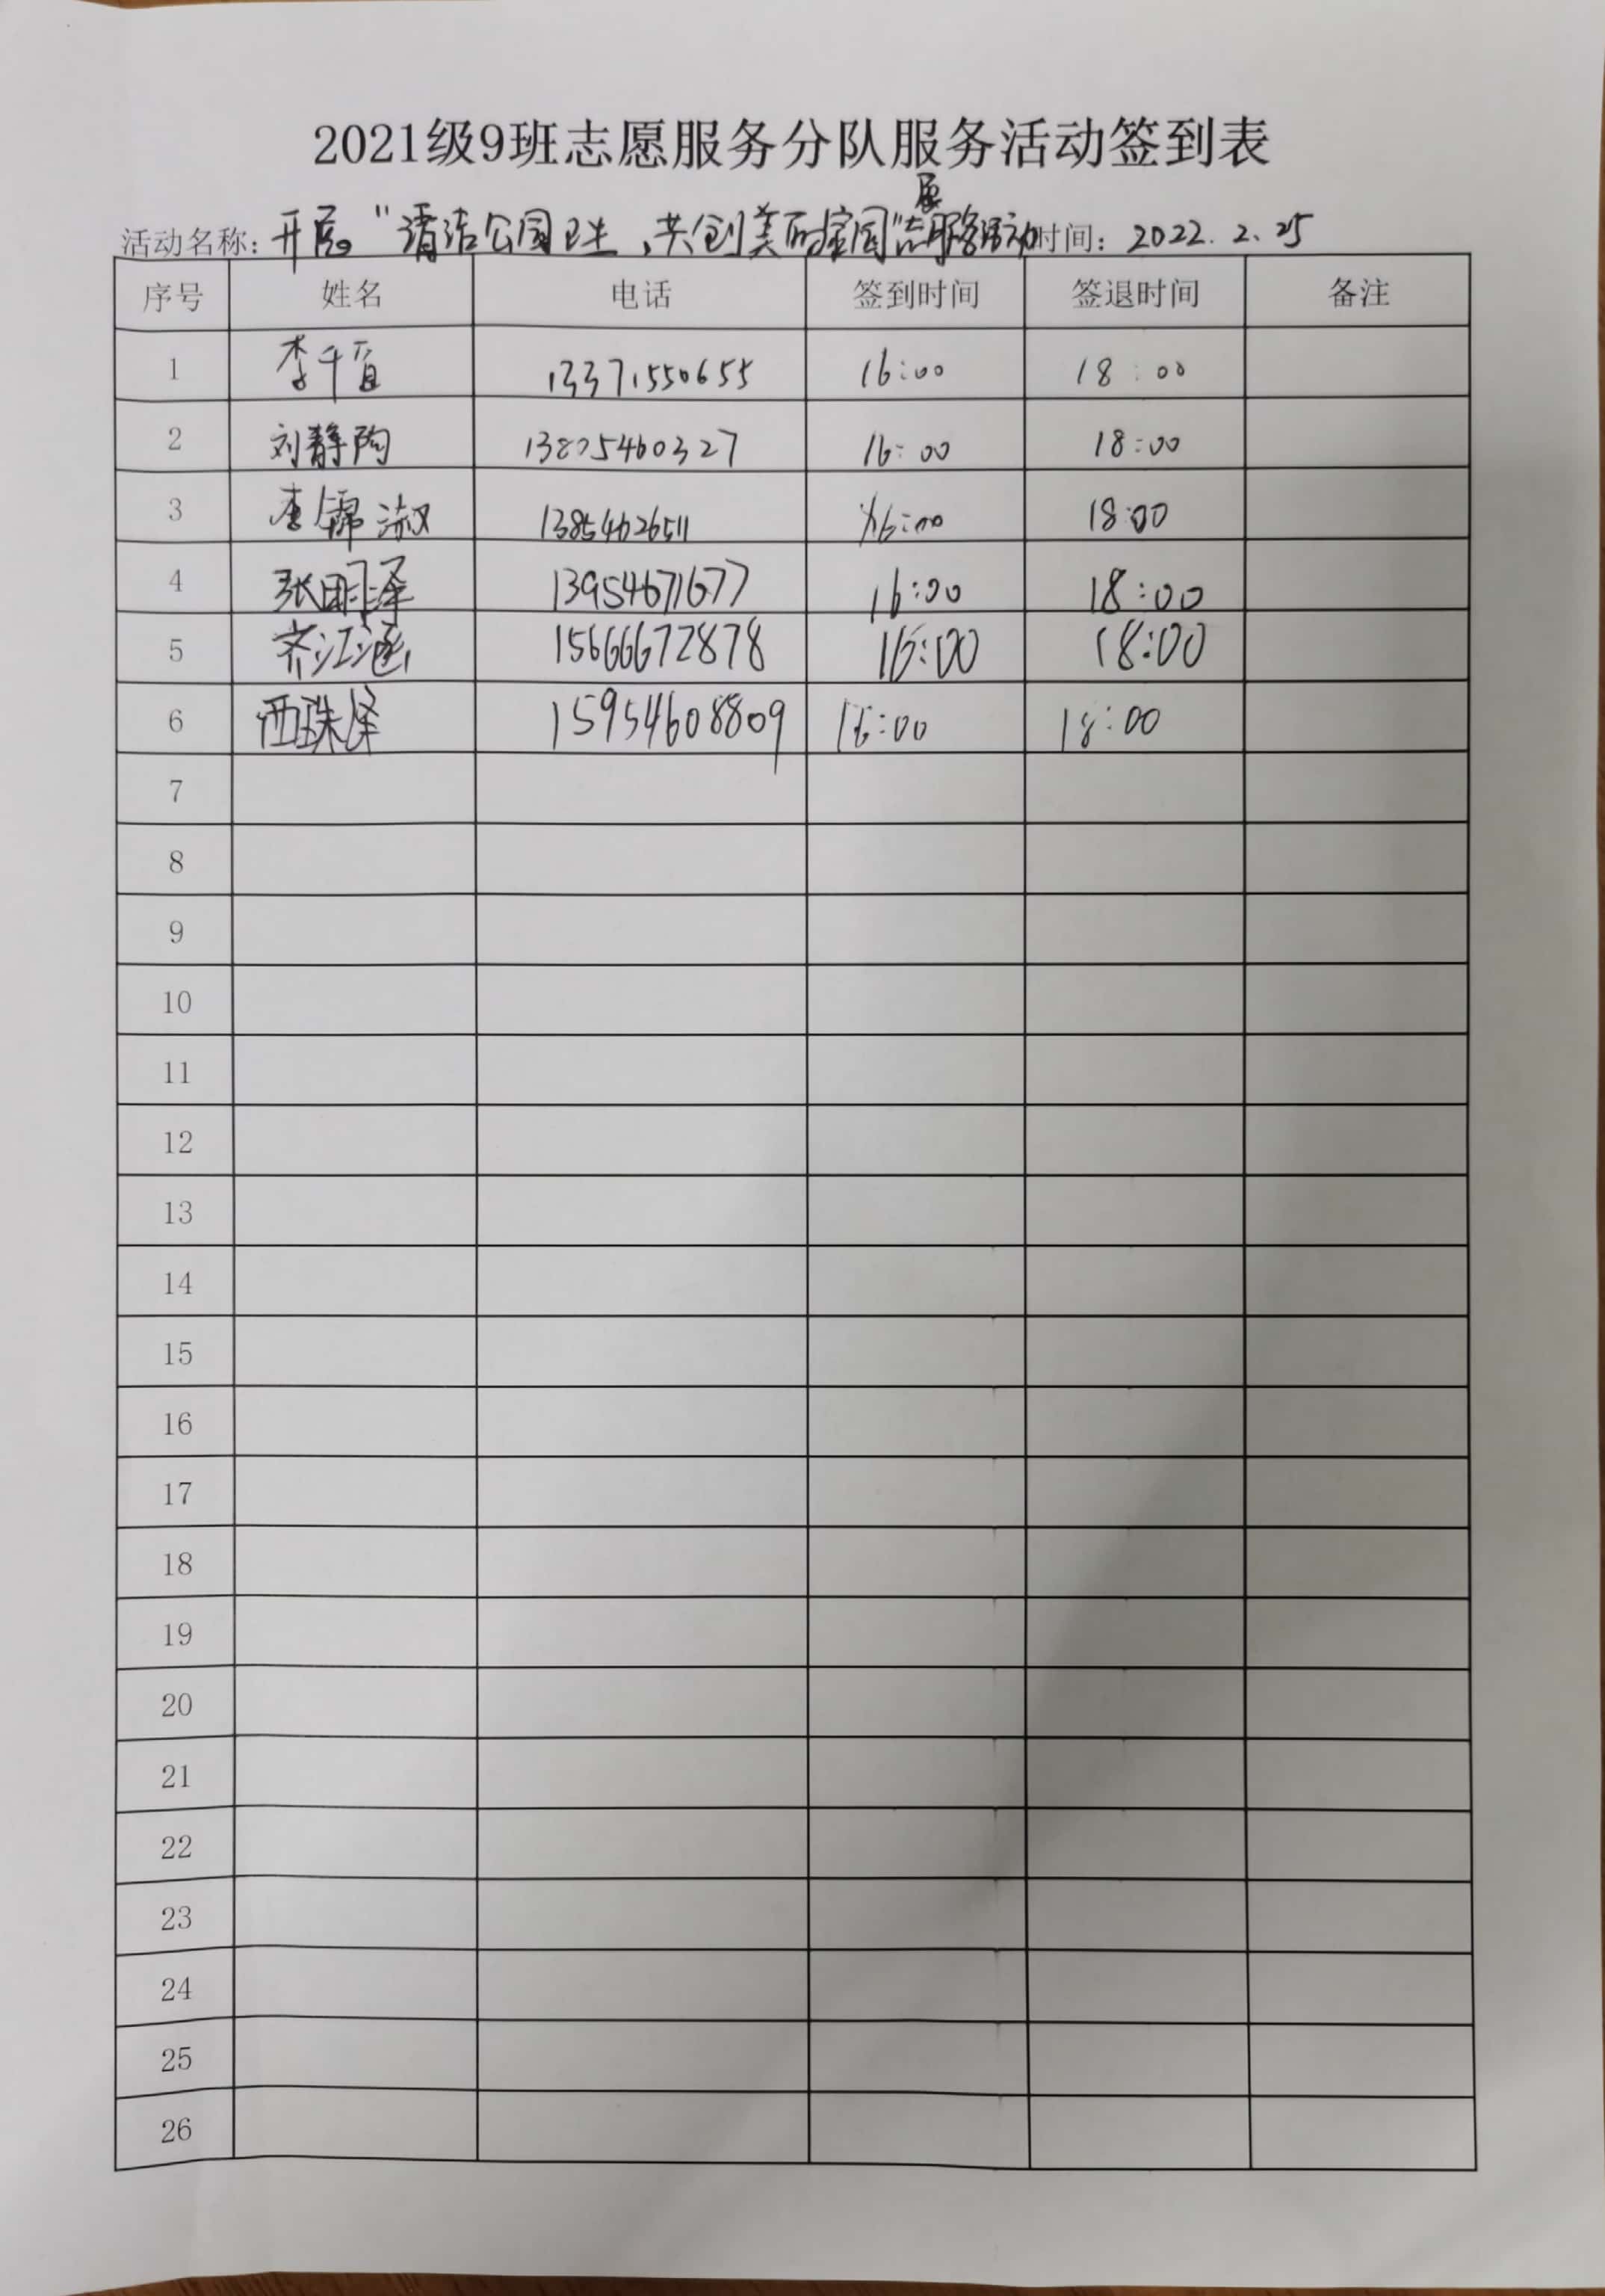 2021级9班志愿服务分队服务活动签到表
活动名称：开展“清洁公园卫生，共创美丽家园”志愿服务活动 时间：2022.2.25
序号 姓名 电话 签到时间 签退时间 备注
1 李千 13371550655 16:00 18:00
2 刘静陶 13805460327 16:00 18:00
3 李锦淑 13854626511 16:00 18:00
4 张明泽 13954671677 16:00 18:00
5 齐江涵 15666672878 16:00 18:00
6 西珠烽 15954608809 16:00 18:00
7
8
9
10
11
12
13
14
15
16
17
18
19
20
21
22
23
24
25
26